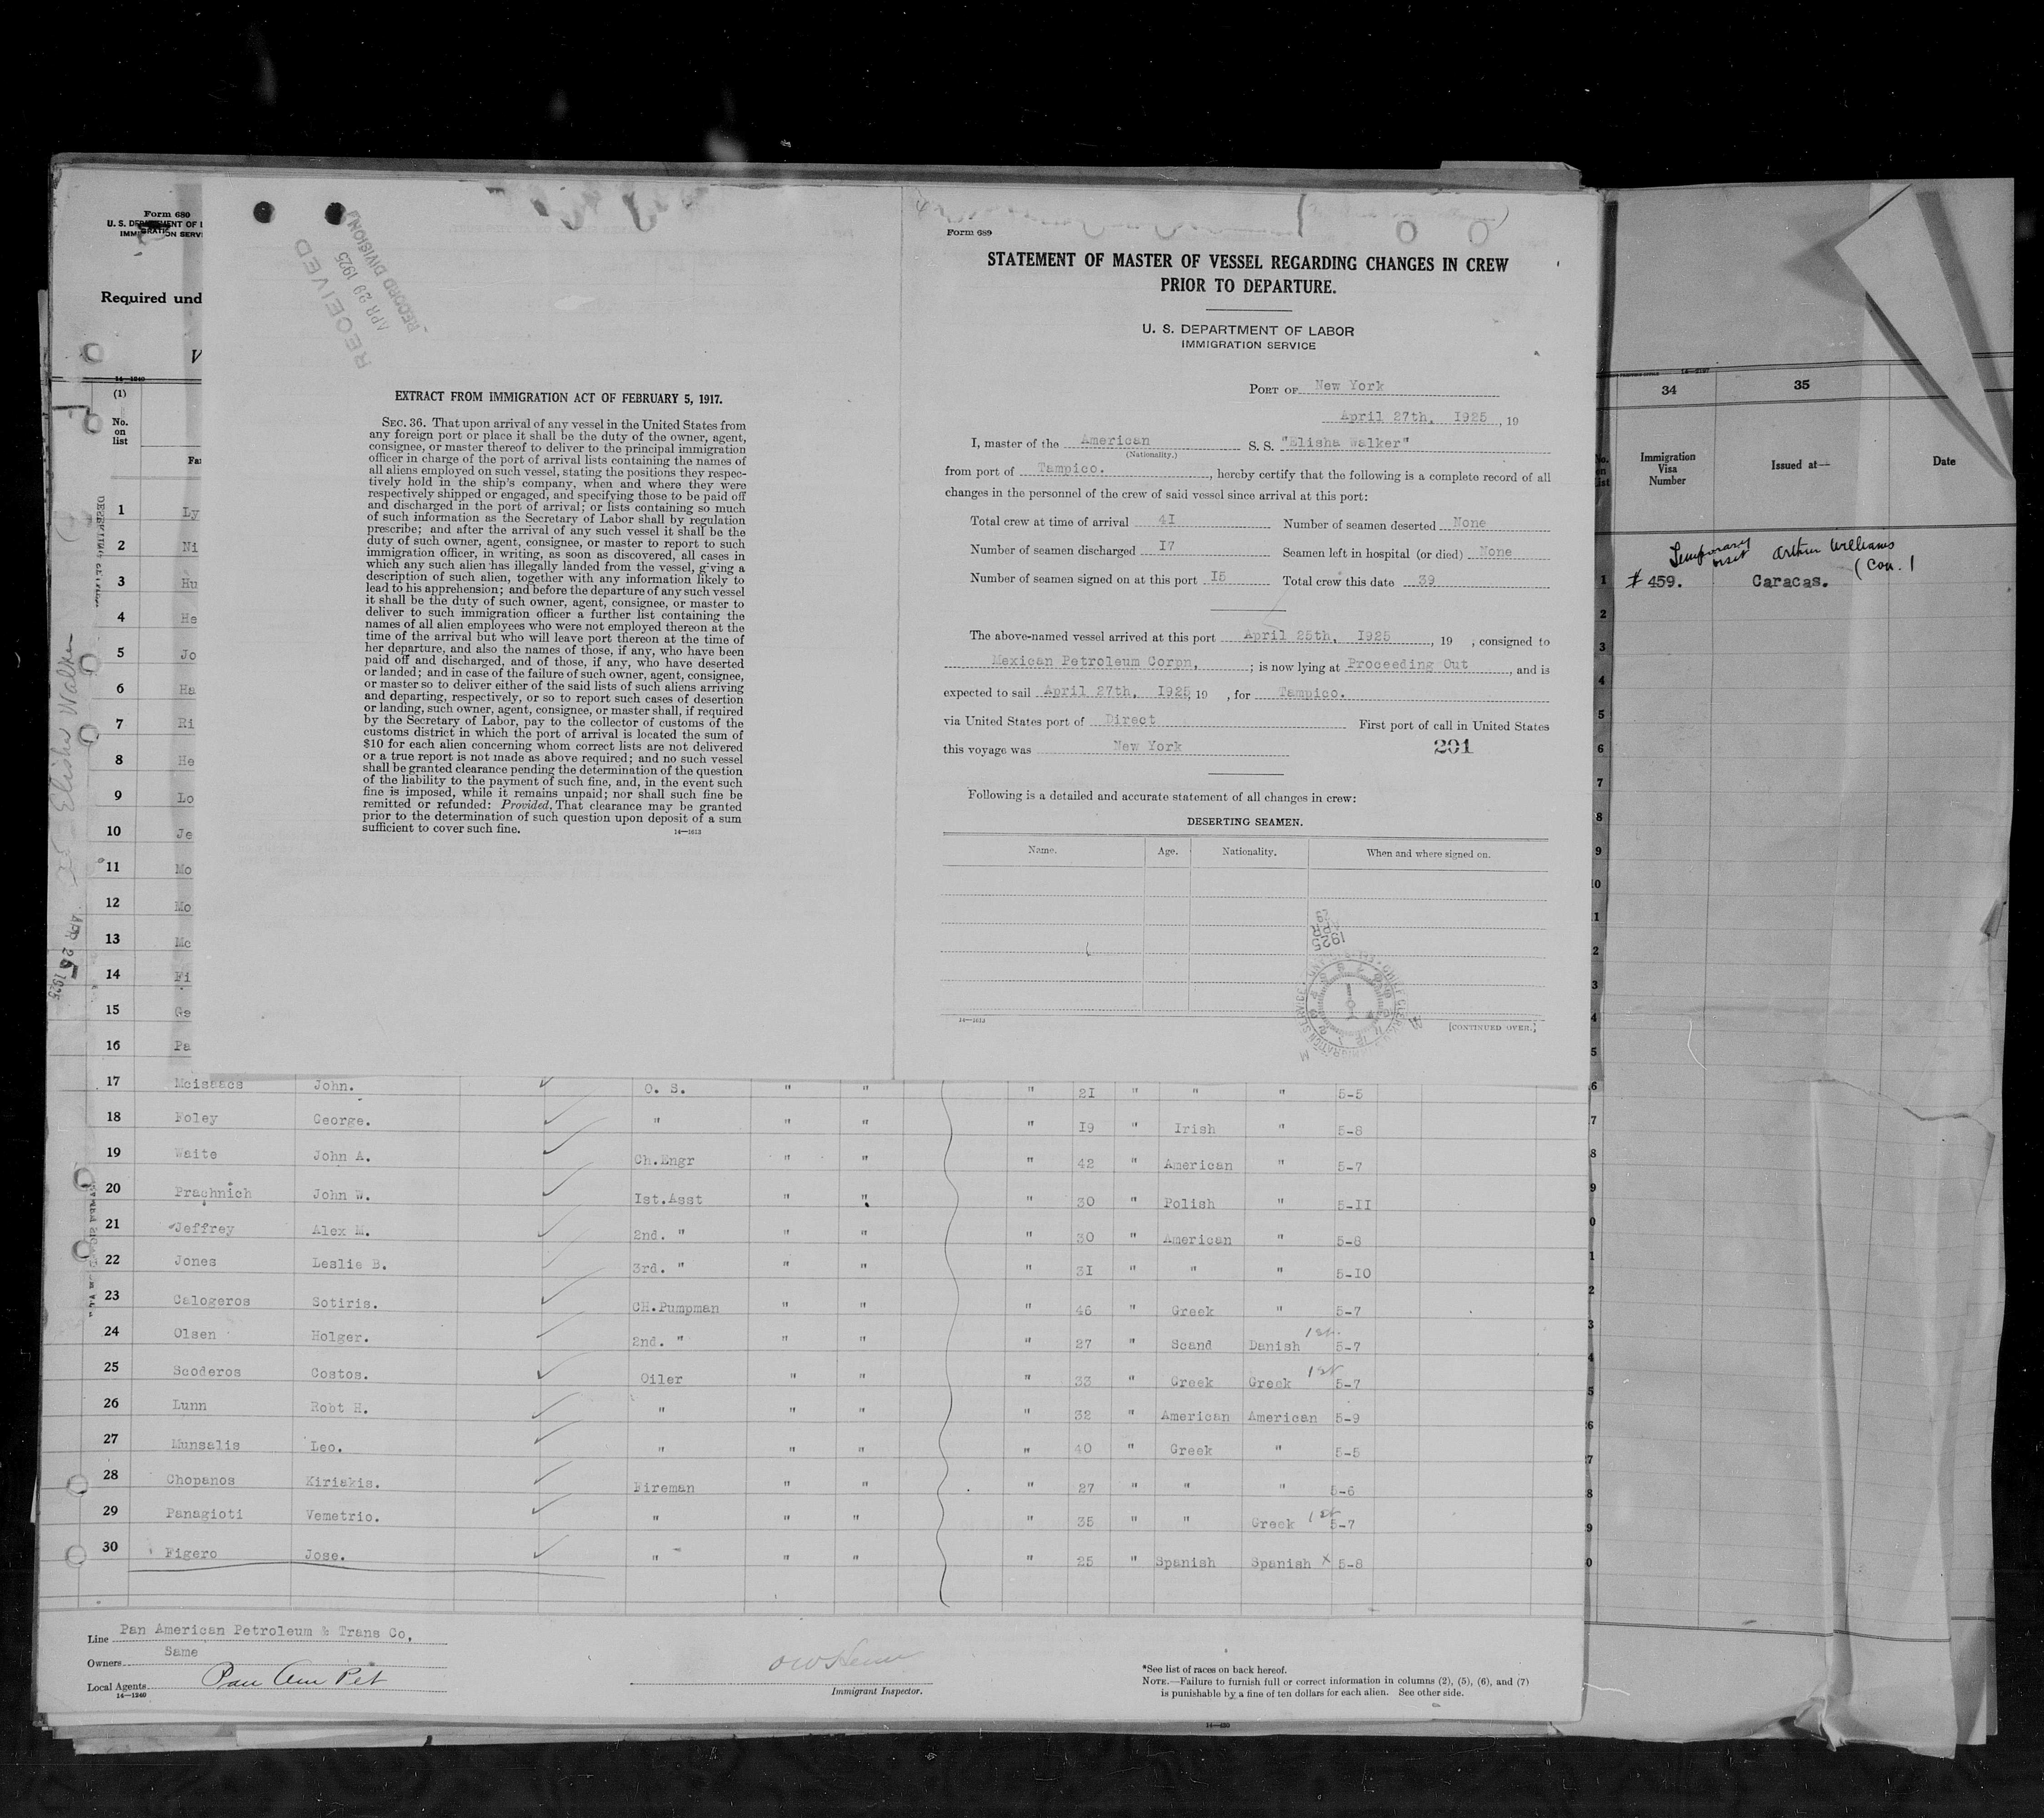 Form 680
U. S. DEPARTMENT OF
IMMIGRATION SERV
Required und
V
14—1240
(1)
No.
on
list
Fa
1 Ly
2 Ni
3 Hu
4 He
5 Jo
6 Ha
7 Ri
8 He
9 Lo
10 Je
11 Mo
12 Mo
13 Mc
14 Fi
15 Ge
16 Pa
SS Elisha Walker
APR 25 1925
RECEIVED
APR 29 1925
RECORD DIVISION
EXTRACT FROM IMMIGRATION ACT OF FEBRUARY 5, 1917.
SEC. 36. That upon arrival of any vessel in the United States from
any foreign port or place it shall be the duty of the owner, agent,
consignee, or master thereof to deliver to the principal immigration
officer in charge of the port of arrival lists containing the names of
all aliens employed on such vessel, stating the positions they respec-
tively hold in the ship's company, when and where they were
respectively shipped or engaged, and specifying those to be paid off
and discharged in the port of arrival; or lists containing so much
of such information as the Secretary of Labor shall by regulation
prescribe; and after the arrival of any such vessel it shall be the
duty of such owner, agent, consignee, or master to report to such
immigration officer, in writing, as soon as discovered, all cases in
which any such alien has illegally landed from the vessel, giving a
description of such alien, together with any information likely to
lead to his apprehension; and before the departure of any such vessel
it shall be the duty of such owner, agent, consignee, or master to
deliver to such immigration officer a further list containing the
names of all alien employees who were not employed thereon at the
time of the arrival but who will leave port thereon at the time of
her departure, and also the names of those, if any, who have been
paid off and discharged, and of those, if any, who have deserted
or landed; and in case of the failure of such owner, agent, consignee,
or master so to deliver either of the said lists of such aliens arriving
and departing, respectively, or so to report such cases of desertion
or landing, such owner, agent, consignee, or master shall, if required
by the Secretary of Labor, pay to the collector of customs of the
customs district in which the port of arrival is located the sum of
$10 for each alien concerning whom correct lists are not delivered
or a true report is not made as above required; and no such vessel
shall be granted clearance pending the determination of the question
of the liability to the payment of such fine, and, in the event such
fine is imposed, while it remains unpaid; nor shall such fine be
remitted or refunded: Provided, That clearance may be granted
prior to the determination of such question upon deposit of a sum
sufficient to cover such fine.
14—1613
Form 689
STATEMENT OF MASTER OF VESSEL REGARDING CHANGES IN CREW
PRIOR TO DEPARTURE.
U. S. DEPARTMENT OF LABOR
IMMIGRATION SERVICE
PORT OF New York
April 27th, I925, 19
I, master of the American S. S. "Elisha Walker"
(Nationality.)
from port of Tampico., hereby certify that the following is a complete record of all
changes in the personnel of the crew of said vessel since arrival at this port:
Total crew at time of arrival 4I Number of seamen deserted None
Number of seamen discharged I7 Seamen left in hospital (or died) None
Number of seamen signed on at this port I5 Total crew this date 39
The above-named vessel arrived at this port April 25th, I925, 19 , consigned to
Mexican Petroleum Corpn, ; is now lying at Proceeding Out, and is
expected to sail April 27th, I925 19 , for Tampico.
via United States port of Direct First port of call in United States
this voyage was New York 201
Following is a detailed and accurate statement of all changes in crew:
DESERTING SEAMEN.
Name. Age. Nationality. When and where signed on.
1925
APR
29
14—1613
[CONTINUED OVER.]
17 Mcisaacs John. O. S. " " " 2I " " " 5-5
18 Foley George. " " " " I9 " Irish " 5-8
19 Waite John A. Ch.Engr " " " 42 " American " 5-7
20 Prachnich John W. Ist.Asst " " " 30 " Polish " 5-II
21 Jeffrey Alex M. 2nd. " " " " 30 " American " 5-8
22 Jones Leslie B. 3rd. " " " " 3I " " " 5-IO
23 Calogeros Sotiris. CH.Pumpman " " " 46 " Greek " 5-7
24 Olsen Holger. 2nd. " " " " 27 " Scand Danish 1st 5-7
25 Scoderos Costos. Oiler " " " 33 " Greek Greek 1st 5-7
26 Lunn Robt H. " " " " 32 " American American 5-9
27 Munsalis Leo. " " " " 40 " Greek " 5-5
28 Chopanos Kiriakis. Fireman " " " 27 " " " 5-6
29 Panagioti Vemetrio. " " " " 35 " " Greek 1st 5-7
30 Figero Jose. " " " " 25 " Spanish Spanish x 5-8
Line Pan American Petroleum & Trans Co,
Owners Same
Local Agents Pan Am Pet
14—1240
Immigrant Inspector.
*See list of races on back hereof.
NOTE.—Failure to furnish full or correct information in columns (2), (5), (6), and (7)
is punishable by a fine of ten dollars for each alien. See other side.
14—430
34 35
No.
on
List
Immigration
Visa
Number
Issued at—
Date
Temporary
visit
Arthur Williams
(Con.
1 # 459. Caracas.
2
3
4
5
6
7
8
9